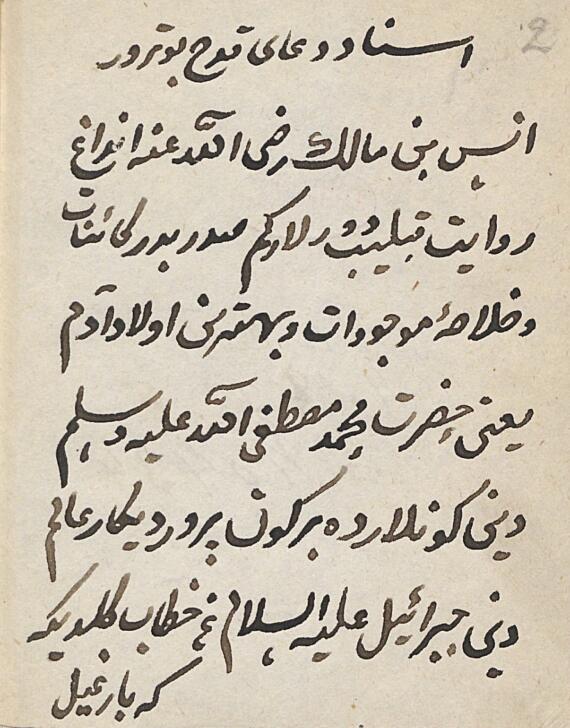 2
اسناد دعای قدح بوترور
انس بن مالك رضی الله عنه اندراغ
روایت قیلیب دورلار کیم صدر بدر کائنات
و خلاصهٔ موجودات و بهترین اولاد آدم
یعنی حضرت محمد مصطفی الله علیه و سلم
دینی کونلارده بر کون پروردیکار عالم
دینی جبرائیل علیه السلام غه خطاب کلدیکه
که بارغیل